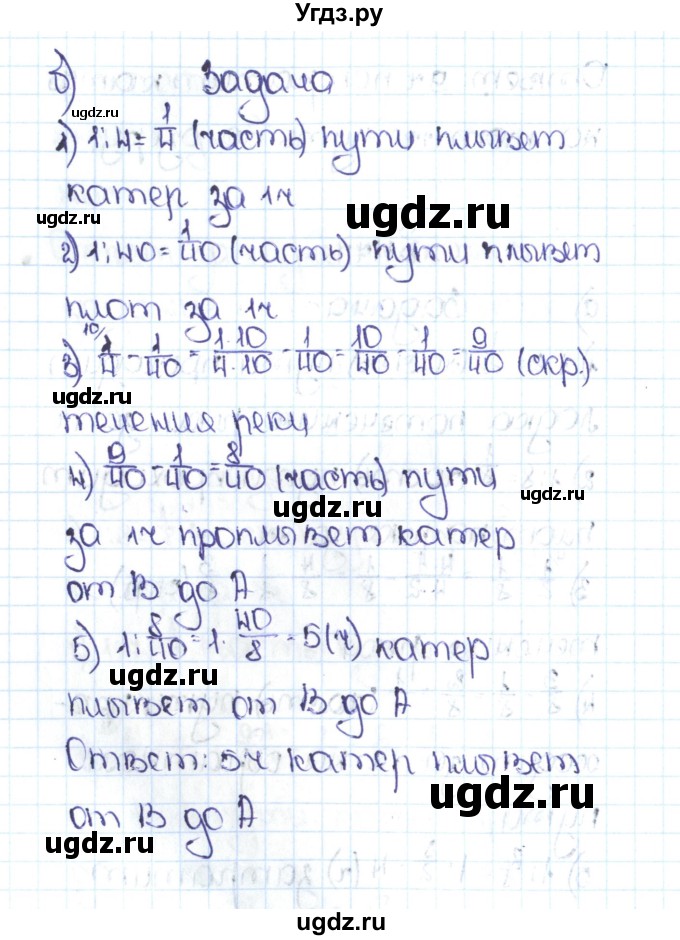 Угдз.ру
б) Задача
ugdz.ru
1) 1:4=1/4 (часть) пути плывет
катер за 1ч
ugdz.ru
ugdz.ru
2) 1:40=1/40 (часть) пути плывет
плот за 1ч
ugdz.ru
3) 10/ 1/4 - 1/40 = 1·10/4·10 - 1/40 = 10/40 - 1/40 = 9/40 (скр.)
ugdz.ru
течения реки
4) 9/40 - 1/40 = 8/40 (часть) пути
ugdz.ru
ugdz.ru
за 1ч проплывет катер
от В до А
ugdz.ru
5) 1:8/40=1·40/8=5(ч) катер
ugdz.ru
ugdz.ru
плывет от В до А
Ответ: 5ч катер плывет
ugdz.ru
от В до А
ugdz.ru
ugdz.ru